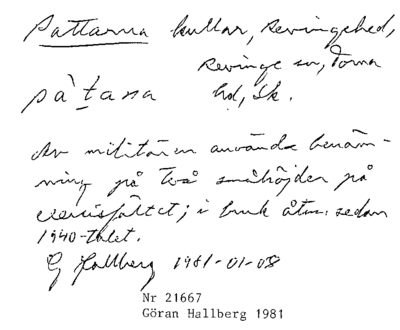 Pattarna kullar, Revingehed,
Revinge sn, Torna
pàtana hd, Sk.
Av militären använda benäm-
ning på två småhöjder på
exercisfältet; i bruk åtm. sedan
1940-talet.
G Hallberg 1981-01-08
Nr 21667
Göran Hallberg 1981